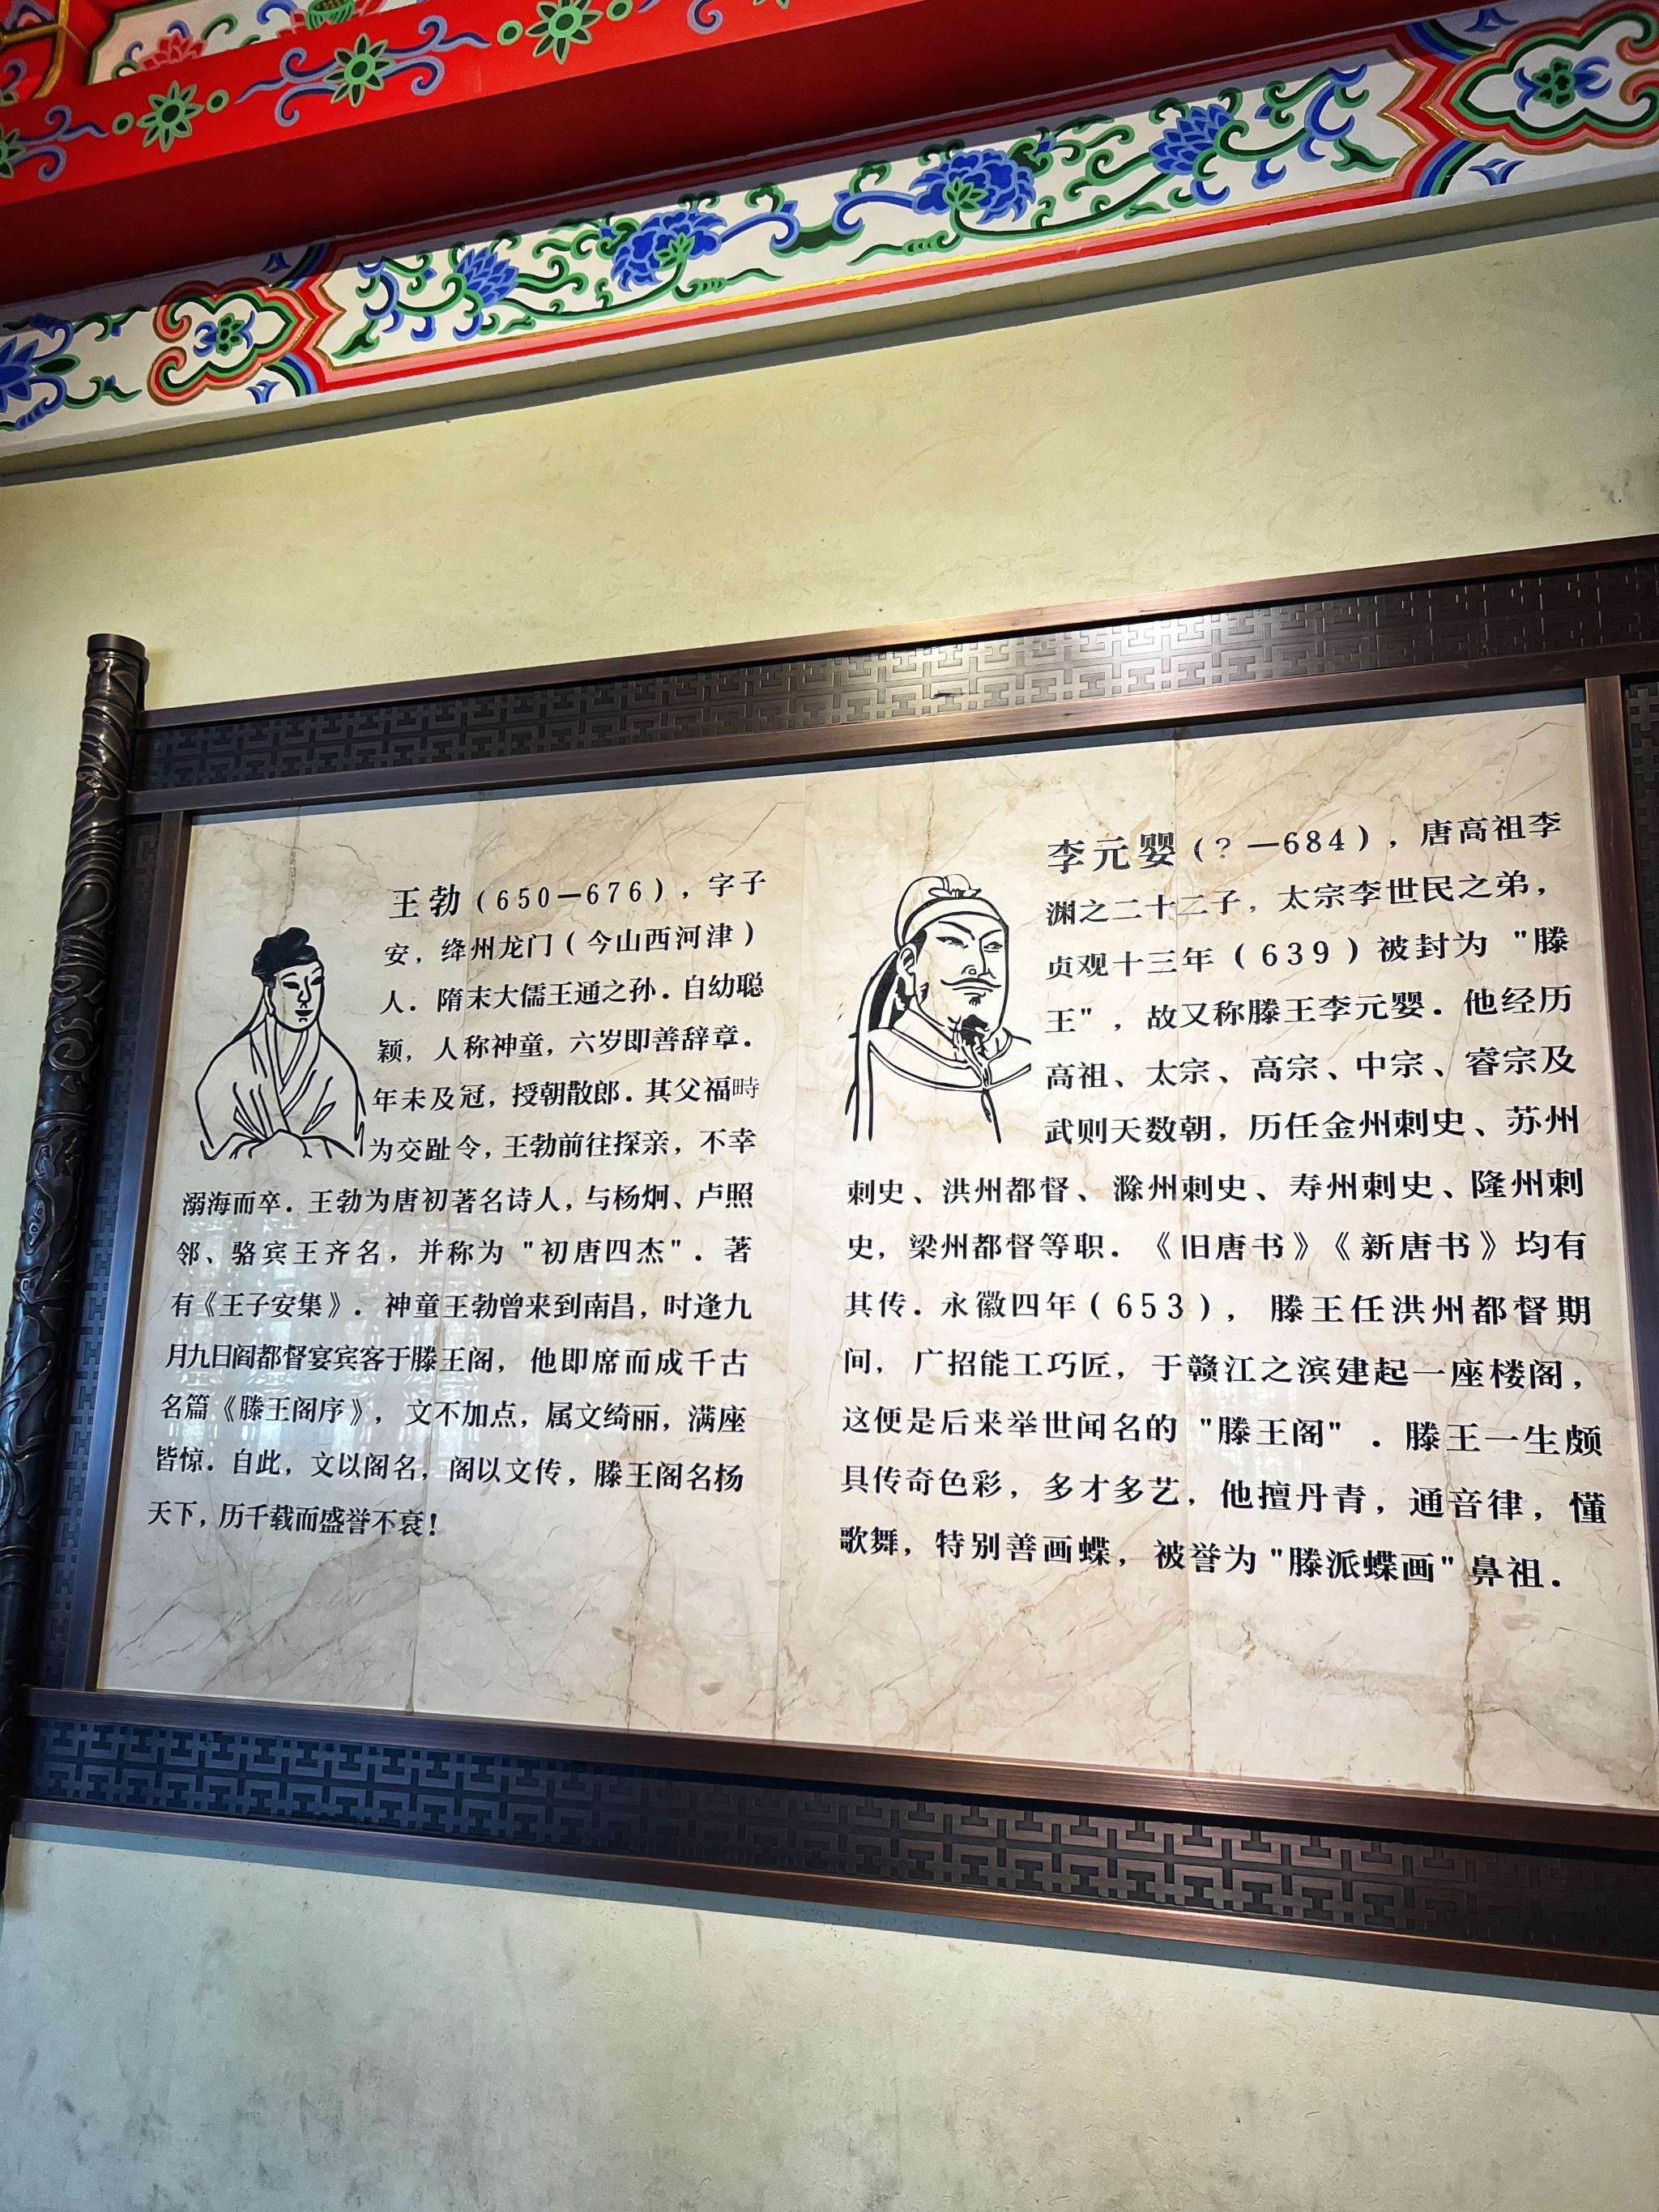 王勃(650—676),字子
安,绛州龙门(今山西河津)
人.隋末大儒王通之孙.自幼聪
颖,人称神童,六岁即善辞章.
年未及冠,授朝散郎.其父福畤
为交趾令,王勃前往探亲,不幸
溺海而卒.王勃为唐初著名诗人,与杨炯、卢照
邻、骆宾王齐名,并称为"初唐四杰".著
有《王子安集》.神童王勃曾来到南昌,时逢九
月九日阎都督宴宾客于滕王阁,他即席而成千古
名篇《滕王阁序》,文不加点,属文绮丽,满座
皆惊.自此,文以阁名,阁以文传,滕王阁名杨
天下,历千载而盛誉不衰!
李元婴(?—684),唐高祖李
渊之二十二子,太宗李世民之弟,
贞观十三年(639)被封为"滕
王",故又称滕王李元婴.他经历
高祖、太宗、高宗、中宗、睿宗及
武则天数朝,历任金州刺史、苏州
刺史、洪州都督、滁州刺史、寿州刺史、隆州刺
史,梁州都督等职.《旧唐书》《新唐书》均有
其传.永徽四年(653),滕王任洪州都督期
间,广招能工巧匠,于赣江之滨建起一座楼阁,
这便是后来举世闻名的"滕王阁".滕王一生颇
具传奇色彩,多才多艺,他擅丹青,通音律,懂
歌舞,特别善画蝶,被誉为"滕派蝶画"鼻祖.